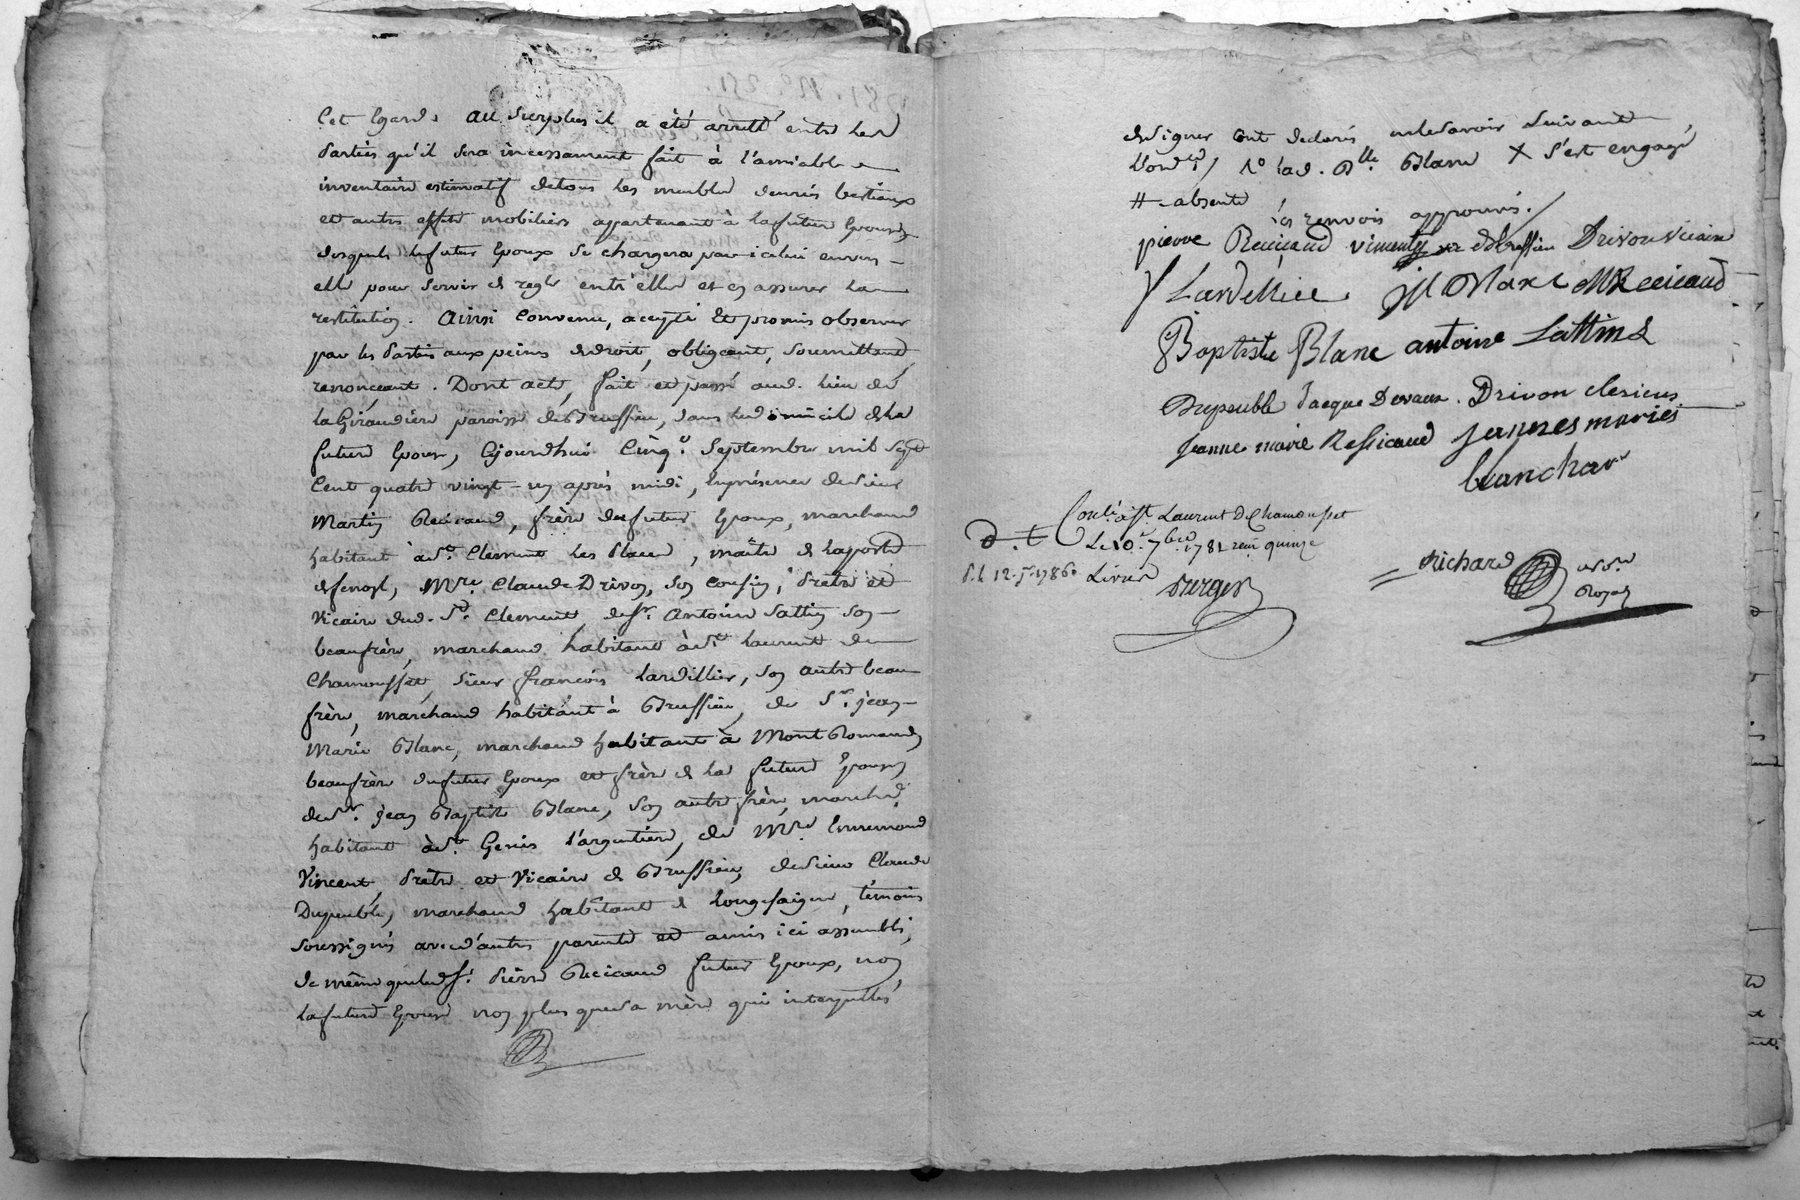 Cet Egard. Au Surplus il a été arretté entre les
Parties qu'il sera incessament fait à l'amiable
inventaire estimatif de tous les meubles denrées bestiaux
et autres effets mobiliers appartenant à la future Epouse
desquels le futur Epoux se chargera par icelui envers
elle pour servir de regle entr'elles et en assurer la
restitution. Ainsi Convenu, accepté Et promis observer
par les Parties aux peines de droit, obligeant, soumettant
renonceant. Dont acte, fait et passé aud. lieu de
la Giraudiere paroisse de Brussieu, dans le domicile de la
future Epouse, Ejourdhui Cinq.e Septembre mil Sept
Cent quatre vingt-un après midi, En présence de sieur
Martin Recicaud, frère du futur Epoux, marchand
habitant à St. Clement les Places, maître de la poste
de fenoyl, Mre. Claude Drivon, son cousin, Prêtre et
Vicaire dud. St. Clement, de sr. Antoine Lattin son
beaufrère, marchand habitant à St. Laurent de
Chamousset, sieur françois Lardillier, son autre beau
frère, marchand habitant à Brussieu, de Sr. jean
Marie Blanc, marchand habitant à Mont Romand,
beaufrère du futur Epoux et frère de la future Epouse,
de sr. jean Baptiste Blanc, son autre frère, marchd.
habitant à St. Genis l'argentière, de Mre. Ennemond
Vincent, Prêtre et Vicaire de Brussieu, de sieur Claude
Dupeuble, marchand habitant de Longesaigne, témoins
soussignés avec d'autres parents et amis ici assemblés,
de même que led. sr. Pierre Recicaud futur Epoux, non
la future Epouse non plus que sa mère qui interpellés
de signer ont declaré ne le savoir suivant
l'ordce / 1º lad. Dlle Blanc X s'est engagé
# absente
les renvois approuvés.
pierre Recicaud vincent vic de Brussieu Drivon Vicaire
f Lardellier JM Blanc MRecicaud
J Baptiste Blanc antoine Lattin
Dupeuble Jacque Devaux. Drivon clericus
Jeanne marie Ressicaud jannes maries
blanchar
Conlé à St. Laurent De Chamousset
Le 10. 7bre 1781 reçu quinze
Livres
D. C
d. l. 12. 5. 1786.
Richard
Royal